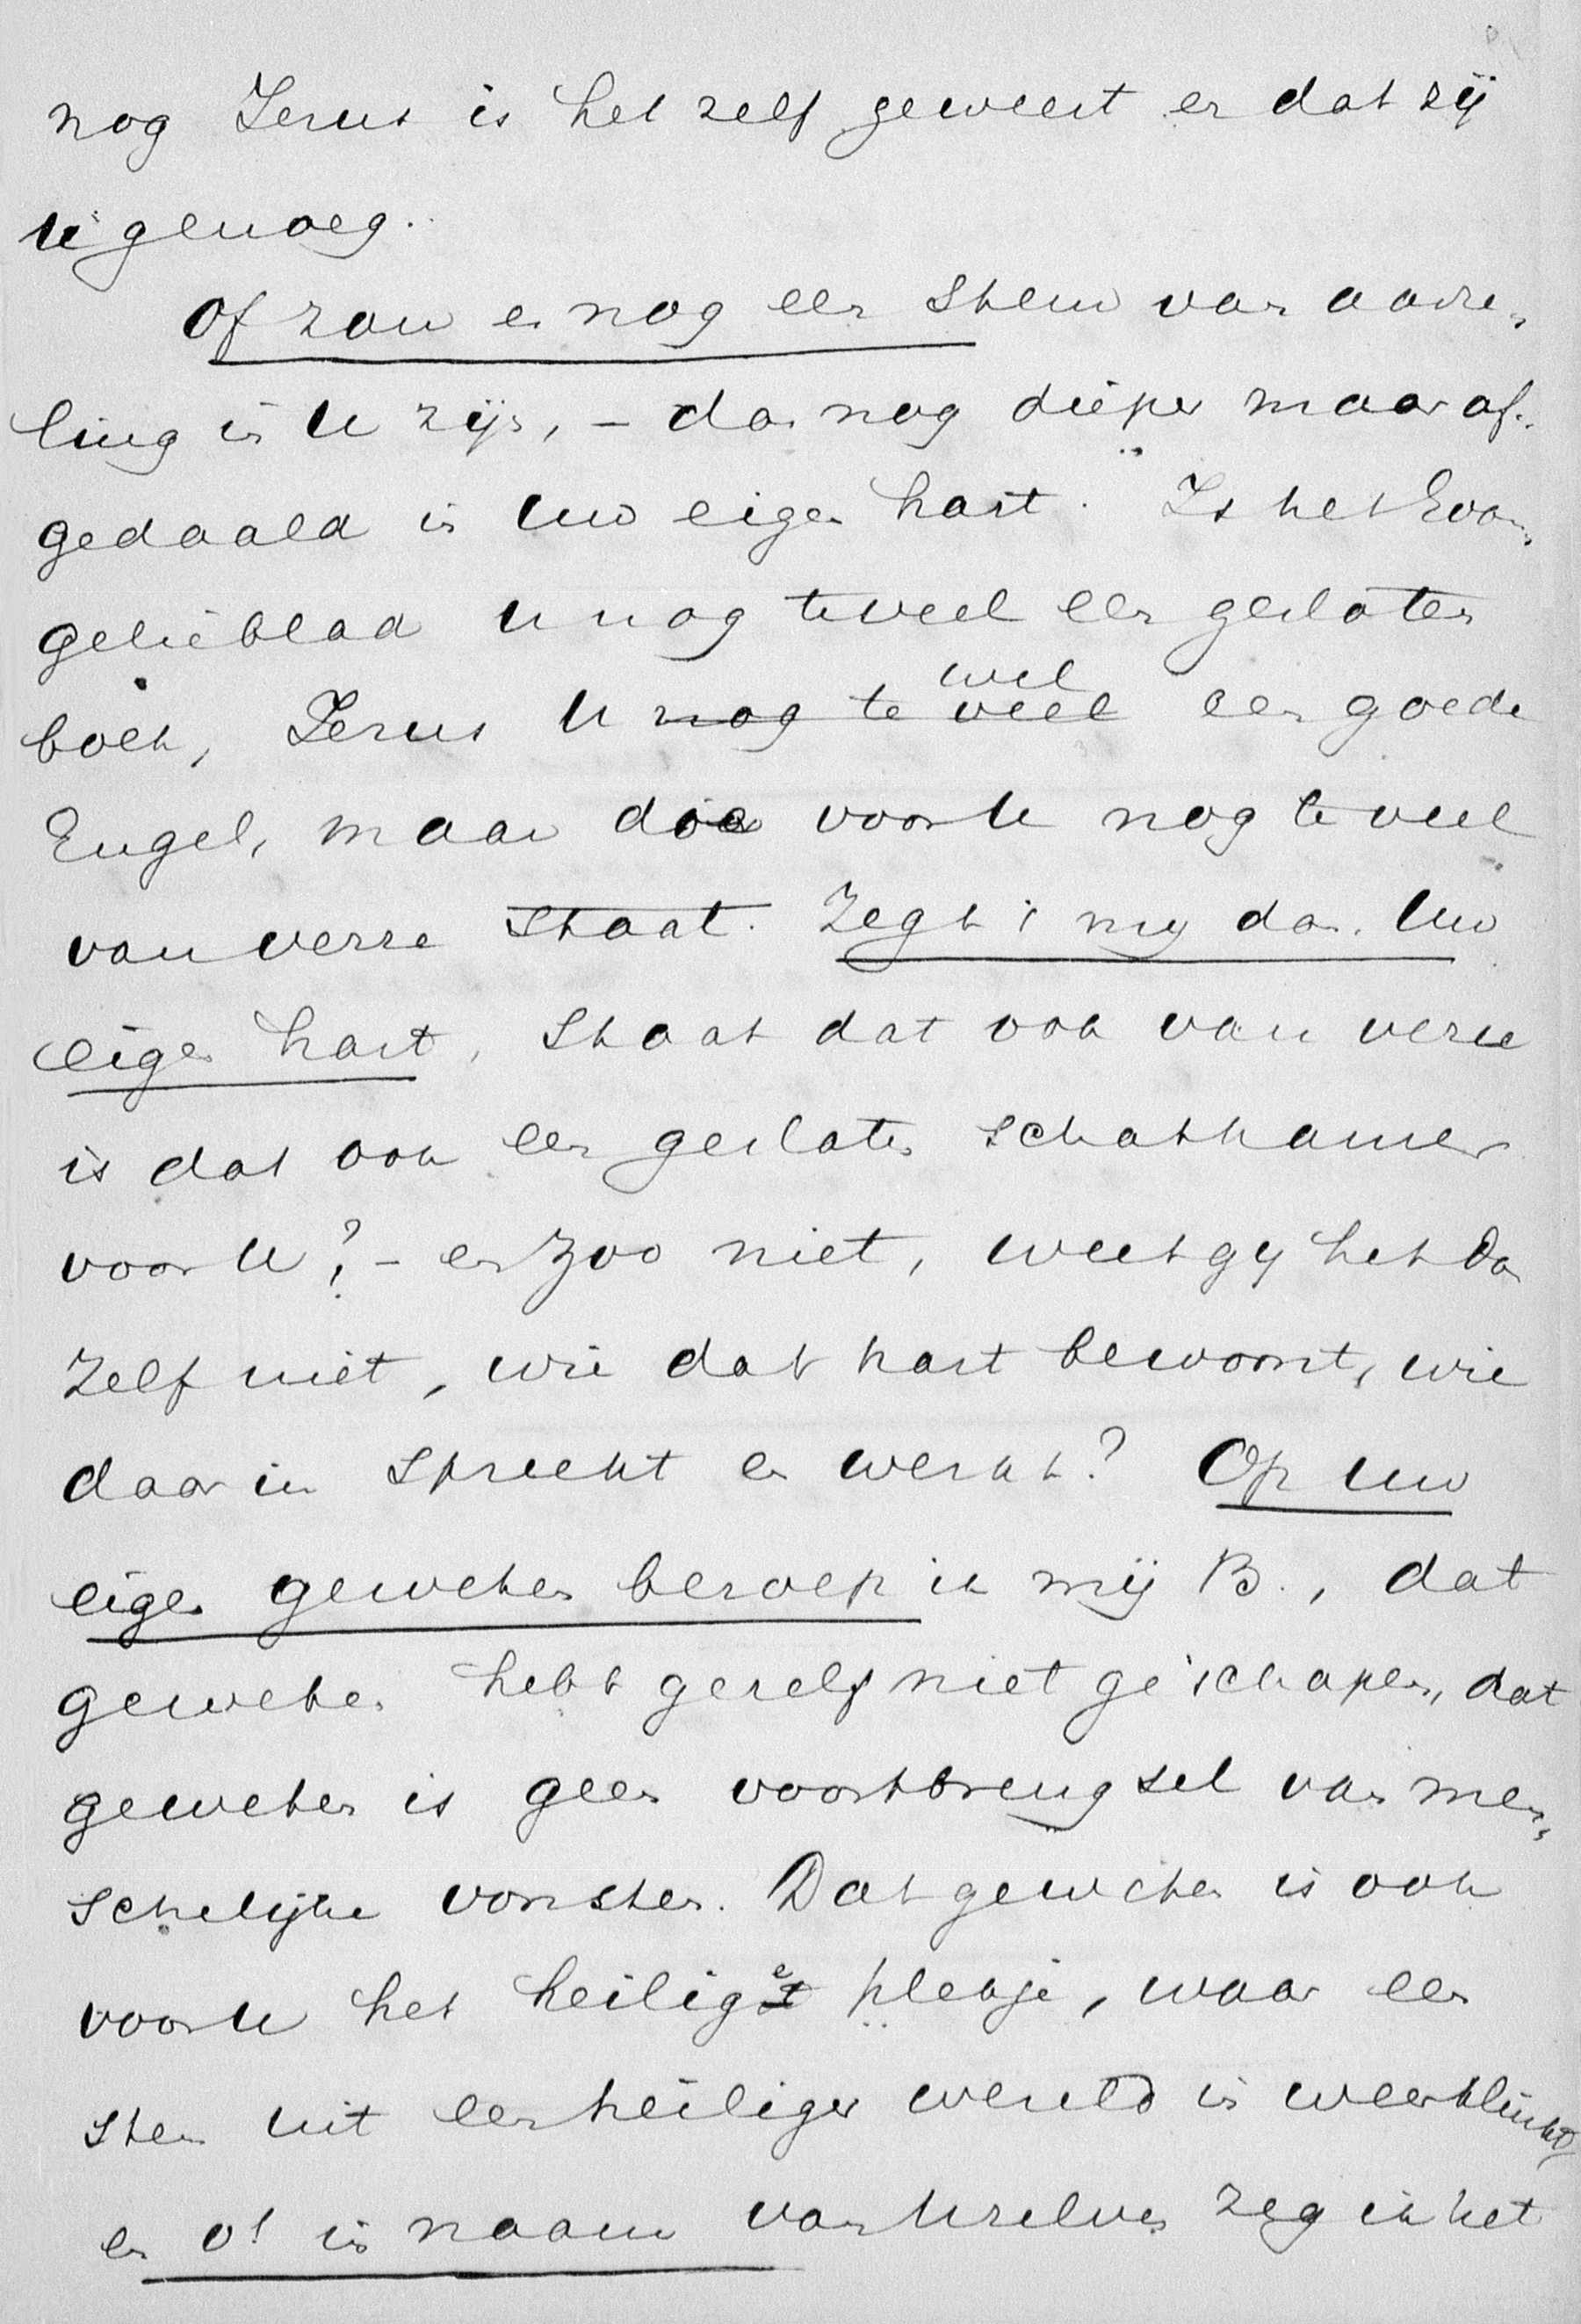 nog Jesus is het zelf geweest en dat zij
U genoeg.
Of zou er nog een stem van aarze„
ling in U zijn, – dan nog dieper maar af„
gedaald in Uw eigen hart. Is het Evan„
gelieblad U nog teveel een gesloten
boek, Jezus U nog te veel wel een goede
Engel, maar die voor U nog te veel
van verre staat. Zegt 't mij dan. Uw
eigen hart, staat dat ook van verre
is dat ook een gesloten schatkamer
voor U? – en zoo niet, weet gij het dan
zelf niet, wie dat hart bewoont, wie
daarin spreekt en werkt? Op uw
eigen geweten beroep ik mij B., dat
geweten hebt ge zelf niet geschapen, dat
geweten is geen voortbrengsel van men„
schelijke vonden. Dat geweten is ook
voor U het heiligst plekje, waar een
stem uit een heiliger wereld in weerklinkt
en o! in naam van Uzelven zeg ik het